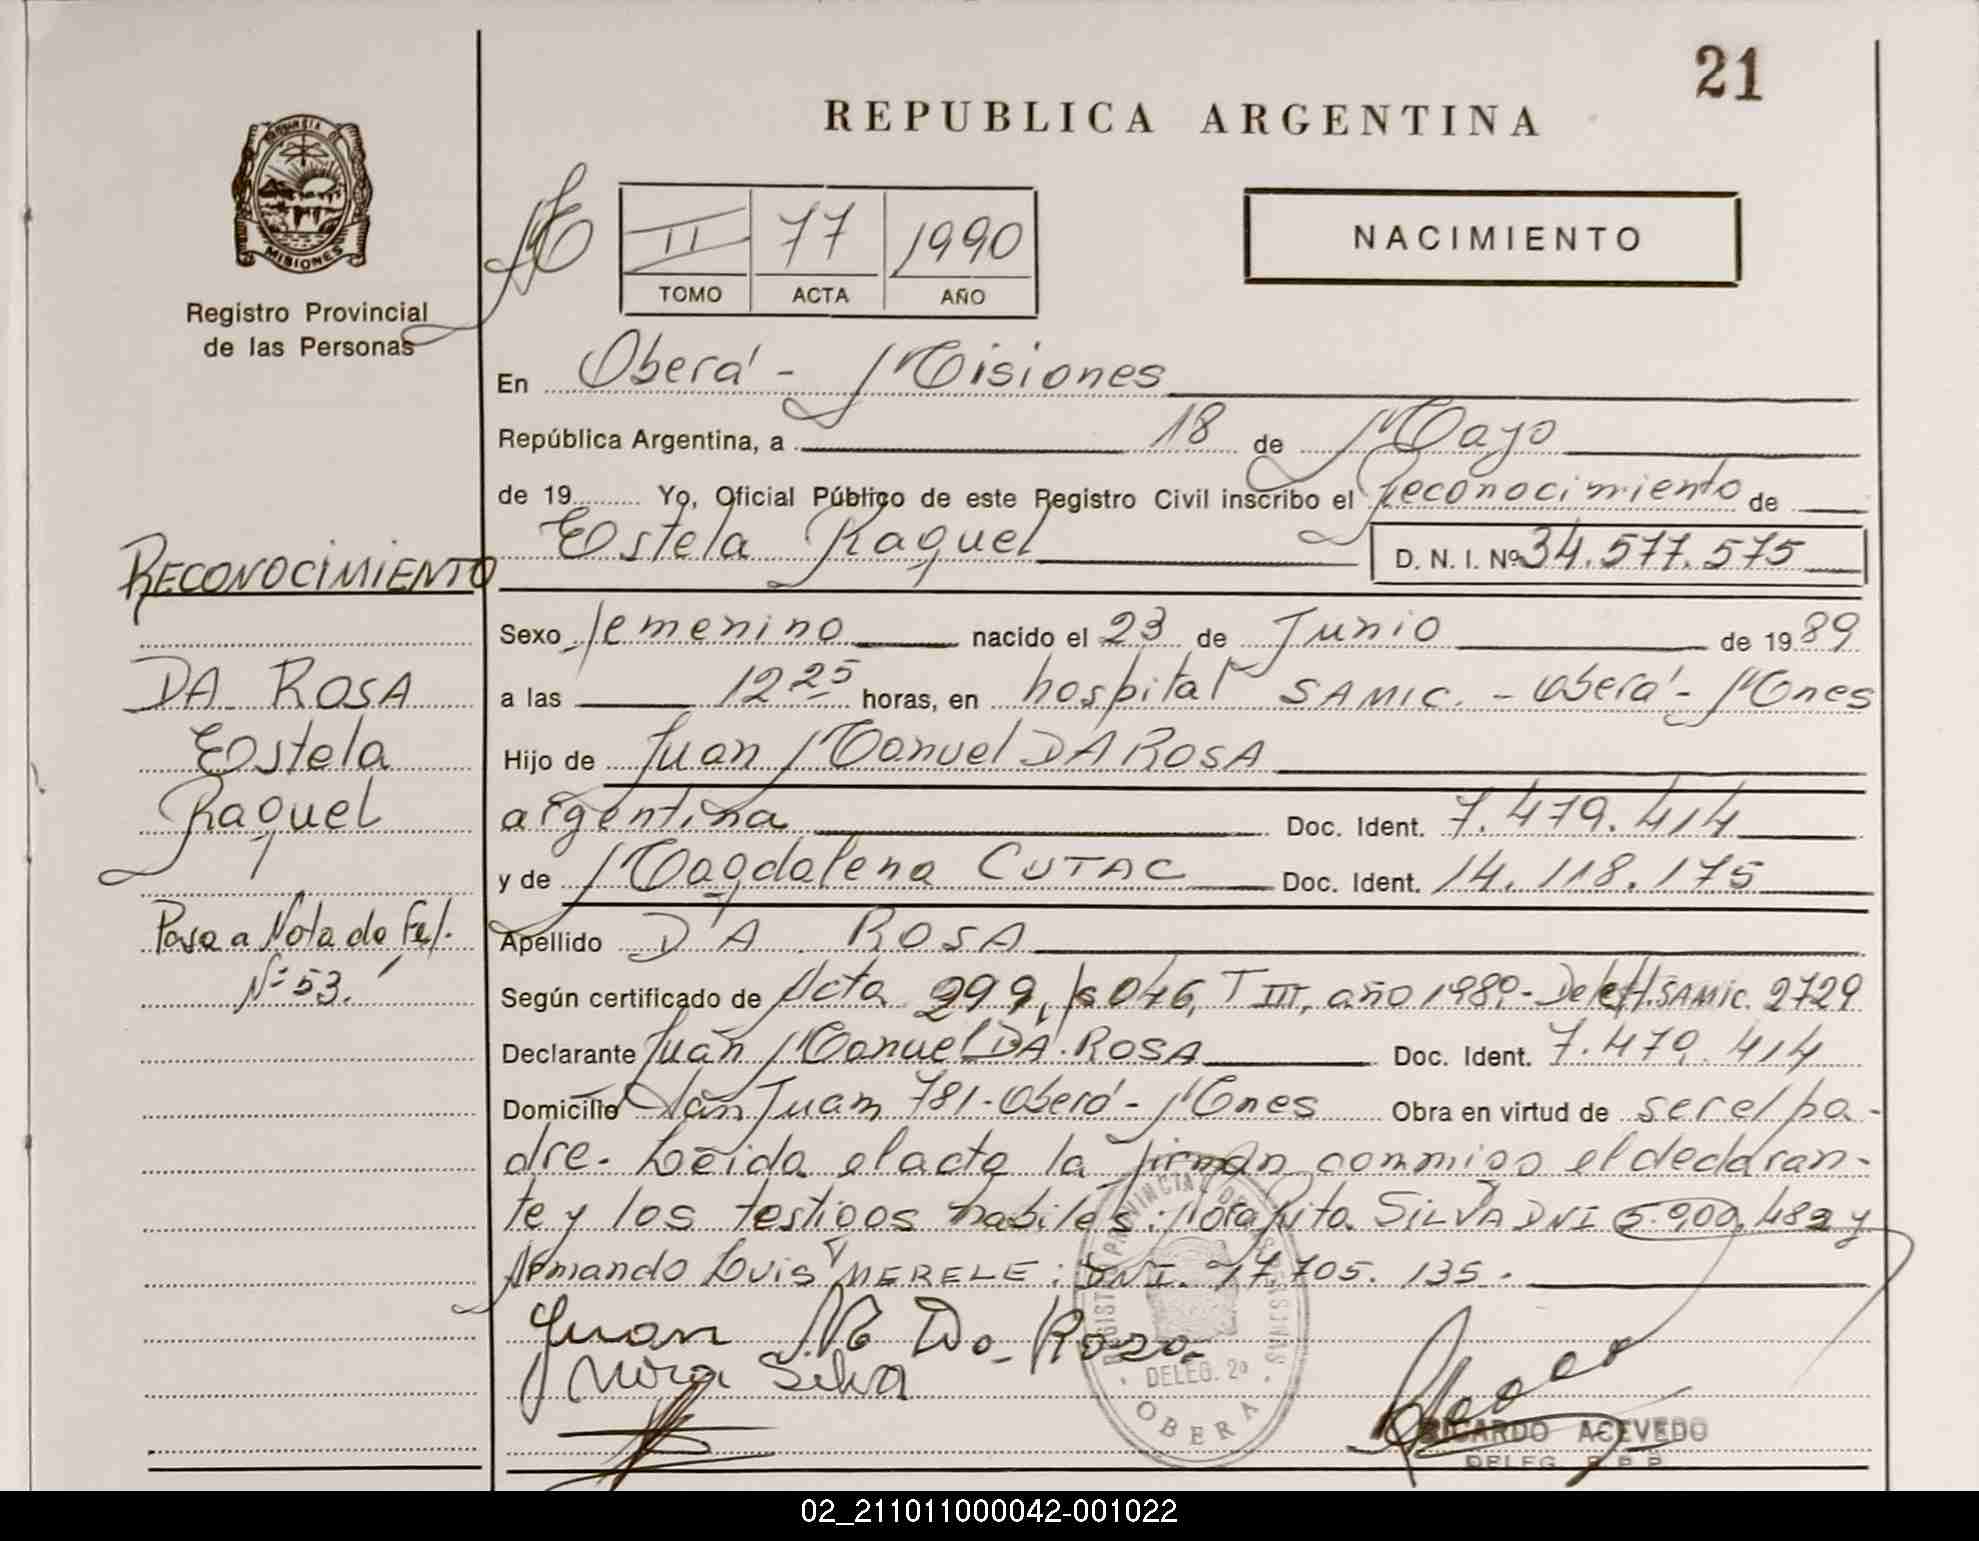 21
REPUBLICA ARGENTINA
PROVINCIA DE
MISIONES
Registro Provincial
de las Personas
II 77 1990
TOMO ACTA AÑO
NACIMIENTO
En Oberá - Misiones
República Argentina, a 18 de Mayo
de 19 Yo, Oficial Público de este Registro Civil inscribo el Reconocimiento de
Estela Raquel D. N. I. Nº 34.577.575
RECONOCIMIENTO
Sexo femenino nacido el 23 de Junio de 1989
DA ROSA
Estela
Raquel
a las 12 25 horas, en hospital SAMIC. - Oberá - Mnes
Hijo de Juan Manuel DA ROSA
argentina Doc. Ident. 7.479.414
y de Magdalena CUTAC Doc. Ident. 14.118.175
Pasa a Nota de
Nº 53.
Apellido DA ROSA
Según certificado de Acta 299, fs 046, T III, año 1989 - SAMIC. 2729
Declarante Juan Manuel DA ROSA Doc. Ident. 7.479.414
Domicilio San Juan 781 - Oberá - Mnes Obra en virtud de ser el pa-
dre. Leída el acta la firman conmigo el declaran-
te y los testigos habiles: Rita SILVA DNI 5.900.482 y
Armando Luis MERELE: DNI. 17.705.135.
Juan M Da Rosa
Nora Silva
REGISTRO PROVINCIAL DE LAS PERSONAS
DELEG. 2ª
OBERA
RICARDO ACEVEDO
DELEG. R P P
02_211011000042-001022